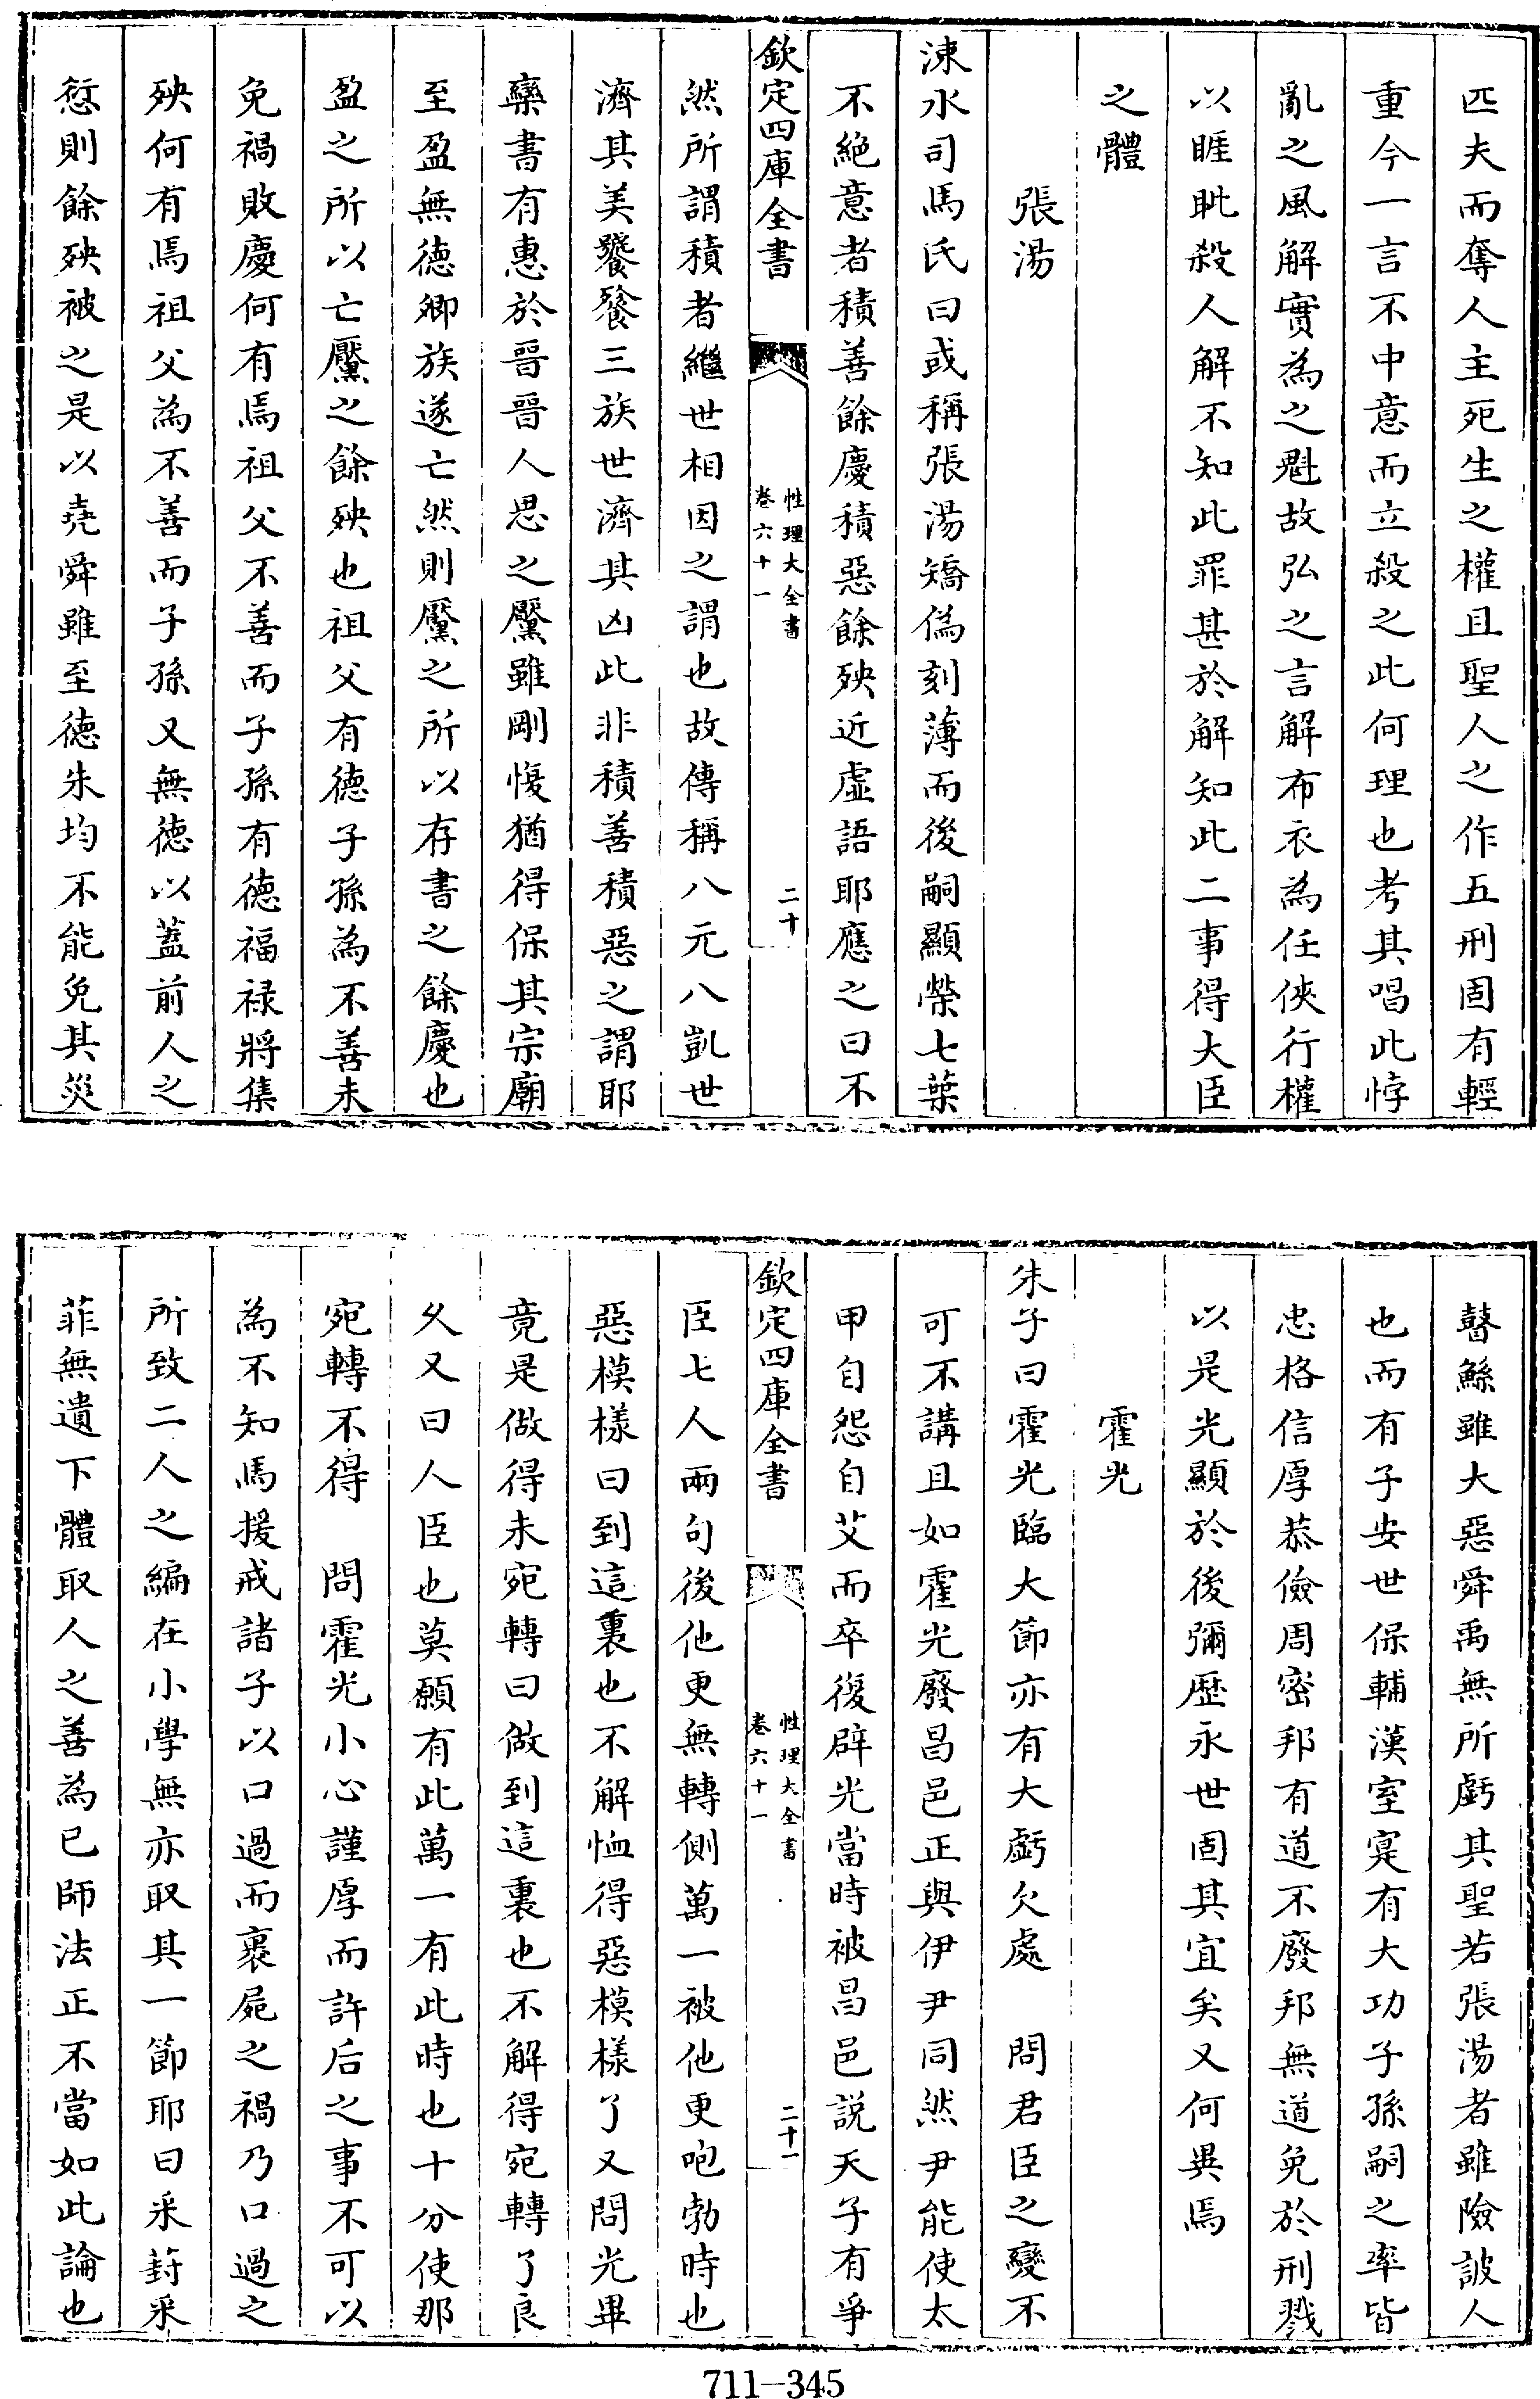 匹夫而奪人主死生之權且聖人之作五刑固有輕
重今一言不中意而立殺之此何理也考其唱此悖
亂之風解實為之魁故弘之言解布衣為任俠行權
以睚眦殺人解不知此罪甚於解知此二事得大臣
之體
張湯
涑水司馬氏曰或稱張湯矯偽刻薄而後嗣顯榮七葉
不絶意者積善餘慶積惡餘殃近虛語耶應之曰不
欽定四庫全書
性理大全書
卷六十一
二十
然所謂積者繼世相因之謂也故傳稱八元八凱世
濟其美饕餮三族世濟其凶此非積善積惡之謂耶
欒書有惠於晉晉人思之黶雖剛愎猶得保其宗廟
至盈無德卿族遂亡然則黶之所以存書之餘慶也
盈之所以亡黶之餘殃也祖父有德子孫為不善未
免禍敗慶何有焉祖父不善而子孫有德福禄將集
殃何有焉祖父為不善而子孫又無德以蓋前人之
愆則餘殃被之是以堯舜雖至德朱均不能免其災
瞽鯀雖大惡舜禹無所虧其聖若張湯者雖險詖人
也而有子安世保輔漢室寔有大功子孫嗣之率皆
忠格信厚恭儉周密邦有道不廢邦無道免於刑戮
以是光顯於後彌歴永世固其宜矣又何異焉
霍光
朱子曰霍光臨大節亦有大虧欠處　問君臣之變不
可不講且如霍光廢昌邑正與伊尹同然尹能使太
甲自怨自艾而卒復辟光當時被昌邑説天子有爭
欽定四庫全書
性理大全書
卷六十一
二十一
臣七人兩句後他更無轉側萬一被他更咆勃時也
惡模樣曰到這裏也不解恤得惡模様了又問光畢
竟是做得未宛轉曰做到這裏也不解得宛轉了良
乆又曰人臣也莫願有此萬一有此時也十分使那
宛轉不得　問霍光小心謹厚而許后之事不可以
為不知馬援戒諸子以口過而裹屍之禍乃口過之
所致二人之編在小學無亦取其一節耶曰采葑采
菲無遺下體取人之善為已師法正不當如此論也
711-345